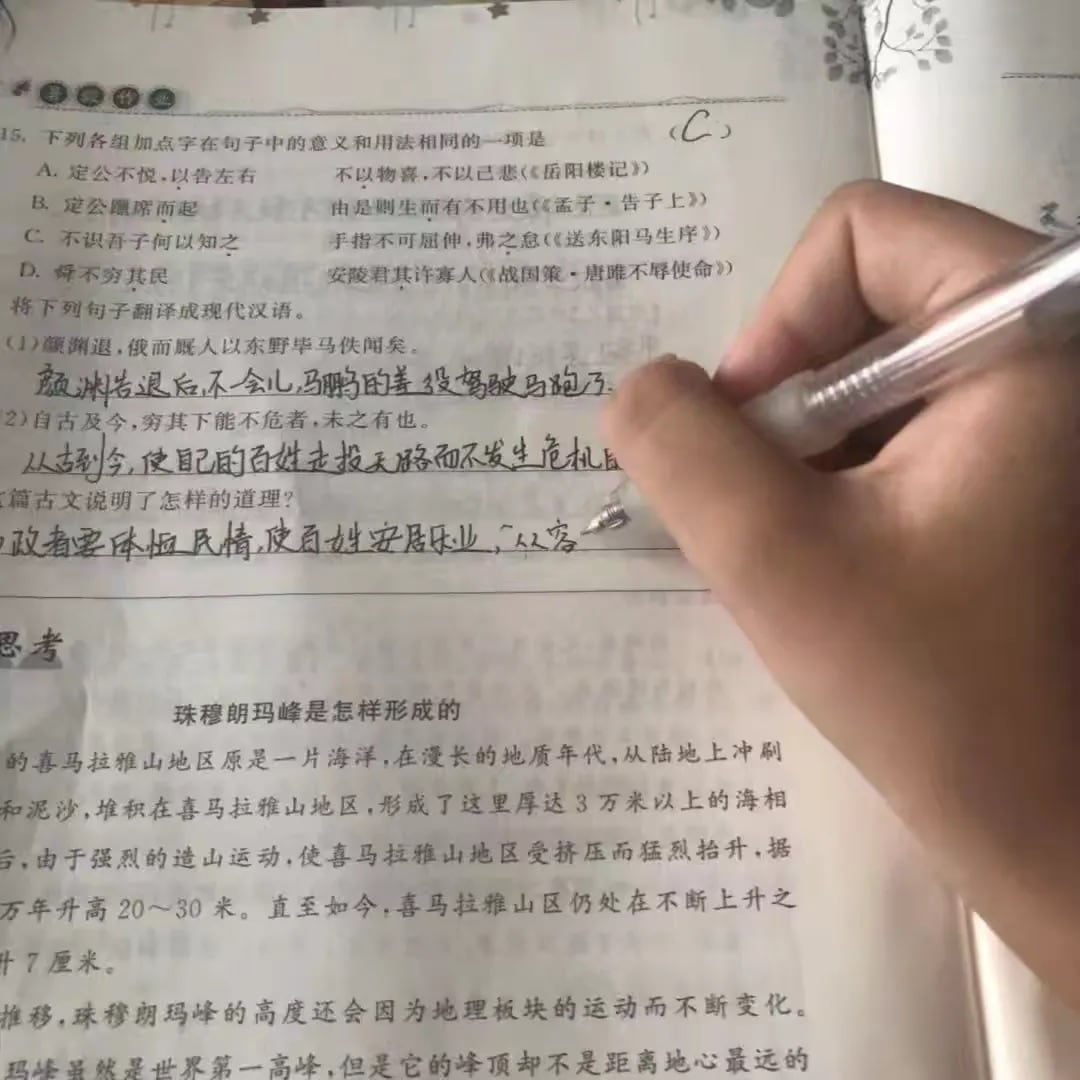 暑假作业
15. 下列各组加点字在句子中的意义和用法相同的一项是 (C)
A. 定公不悦,以告左右 不以物喜,不以己悲(《岳阳楼记》)
B. 定公躐席而起 由是则生而有不用也(《孟子·告子上》)
C. 不识吾子何以知之 手指不可屈伸,弗之怠(《送东阳马生序》)
D. 舜不穷其民 安陵君其许寡人(《战国策·唐雎不辱使命》)
将下列句子翻译成现代汉语。
(1)颜渊退,俄而厩人以东野毕马佚闻矣。
颜渊告退后,不一会儿,马鹏的差役驾驶马跑了
2)自古及今,穷其下能不危者,未之有也。
从古到今,使自己的百姓走投无路而不发生危机
篇古文说明了怎样的道理?
政者要体恤民情,使百姓安居乐业,从容
思考
珠穆朗玛峰是怎样形成的
的喜马拉雅山地区原是一片海洋,在漫长的地质年代,从陆地上冲刷
和泥沙,堆积在喜马拉雅山地区,形成了这里厚达3万米以上的海相
后,由于强烈的造山运动,使喜马拉雅山地区受挤压而猛烈抬升,据
万年升高20~30米。直至如今,喜马拉雅山区仍处在不断上升之
升7厘米。
推移,珠穆朗玛峰的高度还会因为地理板块的运动而不断变化。
玛峰虽然是世界第一高峰,但是它的峰顶却不是距离地心最远的